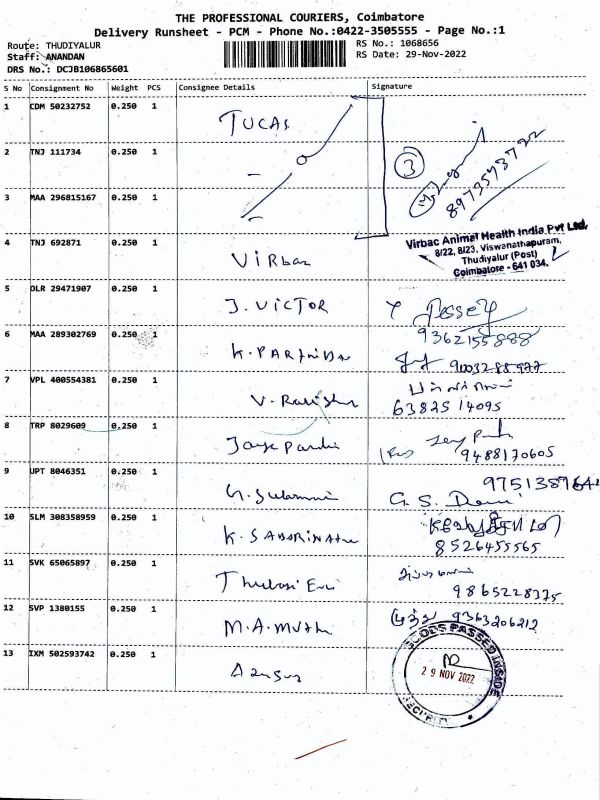 THE PROFESSIONAL COURIERS, Coimbatore
Delivery Runsheet - PCM - Phone No.:0422-3505555 - Page No.:1
Route: THUDIYALUR
RS No.: 1068656
Staff: ANANDAN
RS Date: 29-Nov-2022
DRS No.: DCJB106865601
S No Consignment No Weight PCS Consignee Details Signature
1 CDM 50232752 0.250 1 TUCAS
2 TNJ 111734 0.250 1
3 8973573722
3 MAA 296815167 0.250 1
Virbac Animal Health India Pvt Ltd,
8/22, 8/23, Viswanathapuram,
Thudiyalur (Post)
Coimbatore - 641 034.
4 TNJ 692871 0.250 1 Virbac
5 DLR 29471907 0.250 1 J. VICTOR Jessey
9362155888
6 MAA 289302769 0.250 1 K. 9003288977
7 VPL 400554381 0.250 1 V.
63825 14095
8 TRP 8029609 0.250 1 Jaya
9488170605
9 UPT 8046351 0.250 1 G.
G. S. Devi
10 SLM 308358959 0.250 1 K. SABARINATH
8526455565
11 SVK 65065897 0.250 1 Thulasi
9865228375
12 SVP 1380155 0.250 1 M.A. Muthu
முத்து 9363206212
13 IXM 502593742 0.250 1
GOODS PASSED INSIDE
29 NOV 2022
SECURITY